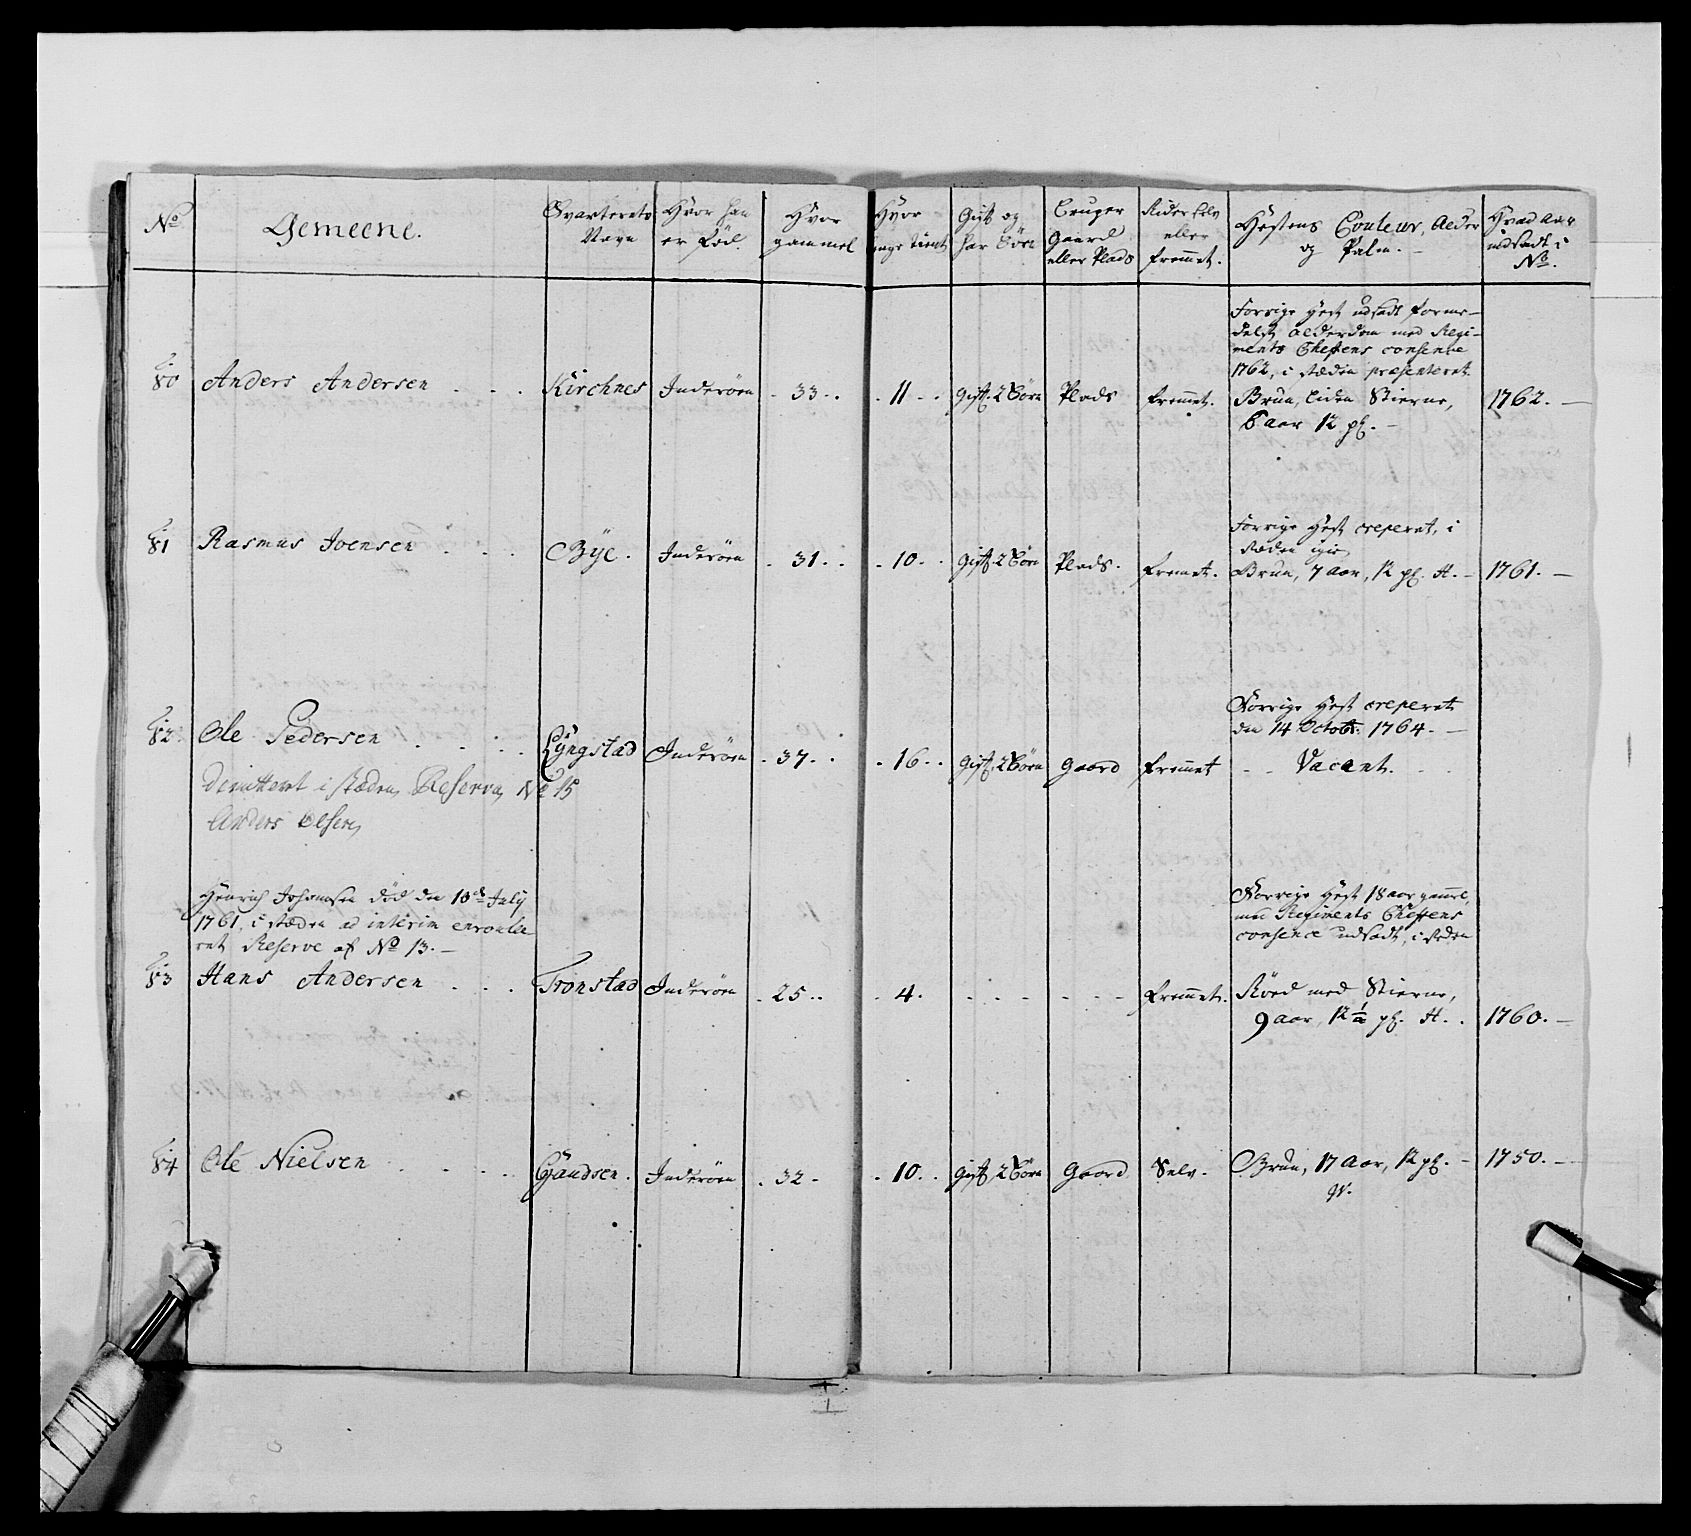 No
Gemeene.
Qvarterets
Navn
Hvor han
er Föd.
Hvor
gammel
Hvor
lenge tient
Gift og
har Børn
Bruger
Gaard
eller Plads
Rider selv
eller
fremmet.
Hestens Couleur, Alder
og Palm.
Hvad Aar
indsadt i
No.
80 Anders Andersen Kirchnes Inderöen 33 11 Gift. 2 Börn Plads fremmet.
Forrige Hest udsadt forme-
delst Alderdom med Regi-
ments Cheffens consence
1762, i stæden præsenteret
Brun, liden Stierne,
6 aar 12 pl. 1762.
81 Rasmus Joensen Bye. Inderöen 31. 10. Gift. 2 Börn Plads. fremmet.
Forrige Hest creperet, i
stæden igien
Brun, 7 Aar, 12 pl. H. 1761.
82 Ole Pedersen Lyngstad Inderöen 37. 16. Gift. 2 Börn Gaard fremmet
Forrige Hest creperet
den 14 Octobr: 1764.
Vacant.
Dimitteret i stæden Reserve No 15
Anders Olsen
Henrich Johansen död den 10de July
1761, i stæden ad interim enroule
ret Reserve af No 13.
83 Hans Andersen Tronstad Inderöen 25 4. fremmet.
Forrige Hest 18 aar gammel,
med Regiments Cheffens
consence udsadt, i steden
Röed med Stierne,
9 aar, 12 1/2 pl. H. 1760.
84 Ole Nielsen Gaudsen. Inderöen 32 10. Gift, 2 Börn Gaard Selv.
Brun, 17 Aar, 12 pl. 1750.
W.